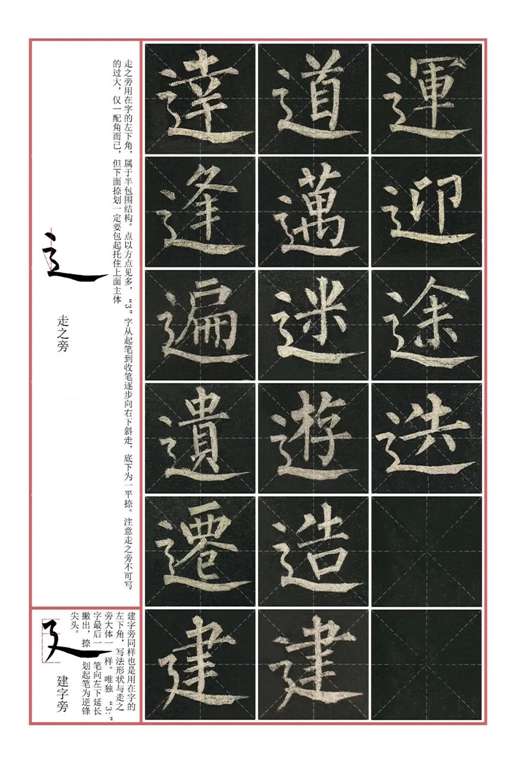 達 道 運
逢 邁 迎
遍 迷 途
遺 遊
遷 造
辶
走之旁
走之旁用在字的左下角，属于半包围结构，点以方点见多，“3”字从起笔到收笔逐步向右下斜走，底下为一平捺，注意走之旁不可写
的过大，仅一配角而已，但下面捺划一定要包起托住上面主体
建 建
廴
建字旁
建字旁同样也是用在字的
左下角，写法形状与走之
旁大体一样，唯独“3”
字最后一笔向左下延长
撇出，捺划起笔为逆锋
尖头。